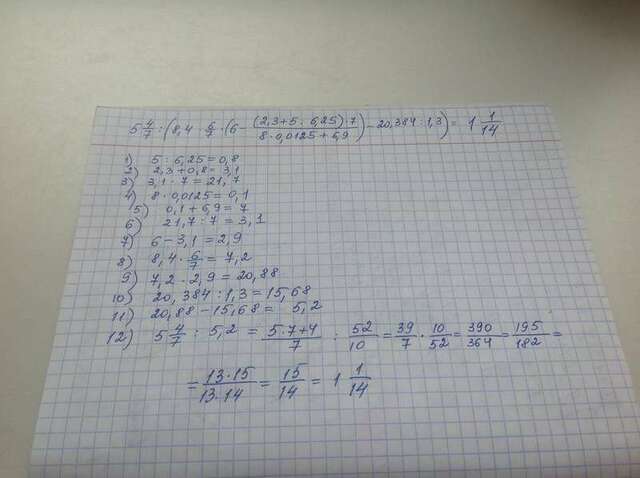 5 4/7 : (8,4 · 6/7 · (6 - (2,3+5 : 6,25) · 7 / 8 · 0,0125 + 6,9) - 20,384 : 1,3) = 1 1/14
1) 5 : 6,25 = 0,8
2) 2,3 + 0,8 = 3,1
3) 3,1 · 7 = 21,7
4) 8 · 0,0125 = 0,1
5) 0,1 + 6,9 = 7
6) 21,7 : 7 = 3,1
7) 6 - 3,1 = 2,9
8) 8,4 · 6/7 = 7,2
9) 7,2 · 2,9 = 20,88
10) 20,384 : 1,3 = 15,68
11) 20,88 - 15,68 = 5,2
12) 5 4/7 : 5,2 = 5·7+4/7 : 52/10 = 39/7 · 10/52 = 390/364 = 195/182 =
= 13·15/13·14 = 15/14 = 1 1/14